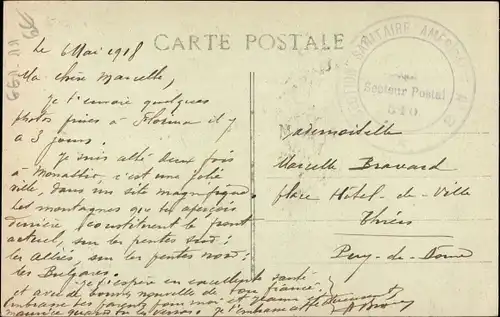 66A-AA
le 6 Mai 1918
CARTE POSTALE
SECTION SANITAIRE AMERICAINE
Secteur Postal
510
Ma chère Marcelle,
Je t'envoie quelques
photos prises à Florina il y
a 3 jours.
Je suis allé deux fois
à Monastir, c'est une jolie
ville, dans un site magnifique.
Les montagnes que tu aperçois
derrière, constituent le front
actuel, sur les pentes sud :
les Alliés, sur les pentes nord :
les Bulgares.
Je t'espère en excellente santé
et avec de bonnes nouvelles de ton fiancé.
Embrasse tes parents pour moi et
Maurice quand tu les verras. Je t'embrasse
Mademoiselle
Marcelle Bravard
place Hôtel-de-Ville
Thiers
Puy-de-Dôme